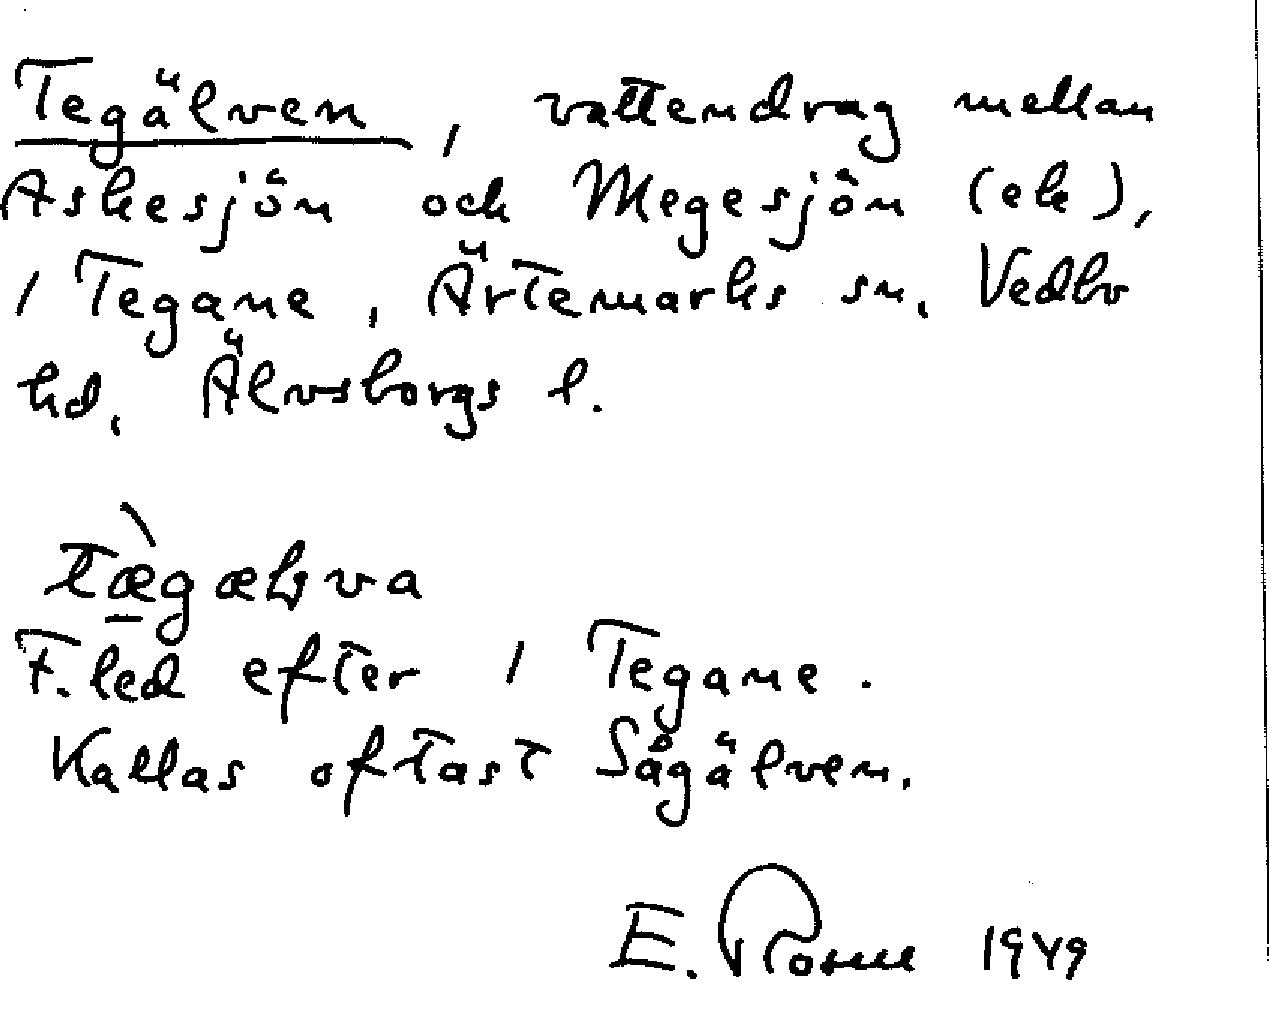 Tegälven, vattendrag mellan
Askesjön och Megesjön (ek),
/ Tegane, Ärtemarks sn. Vedbo
hd. Älvsborgs l.
tæ̀gælva
F. led efter / Tegane.
Kallas oftast Sågälven.
E. 1949